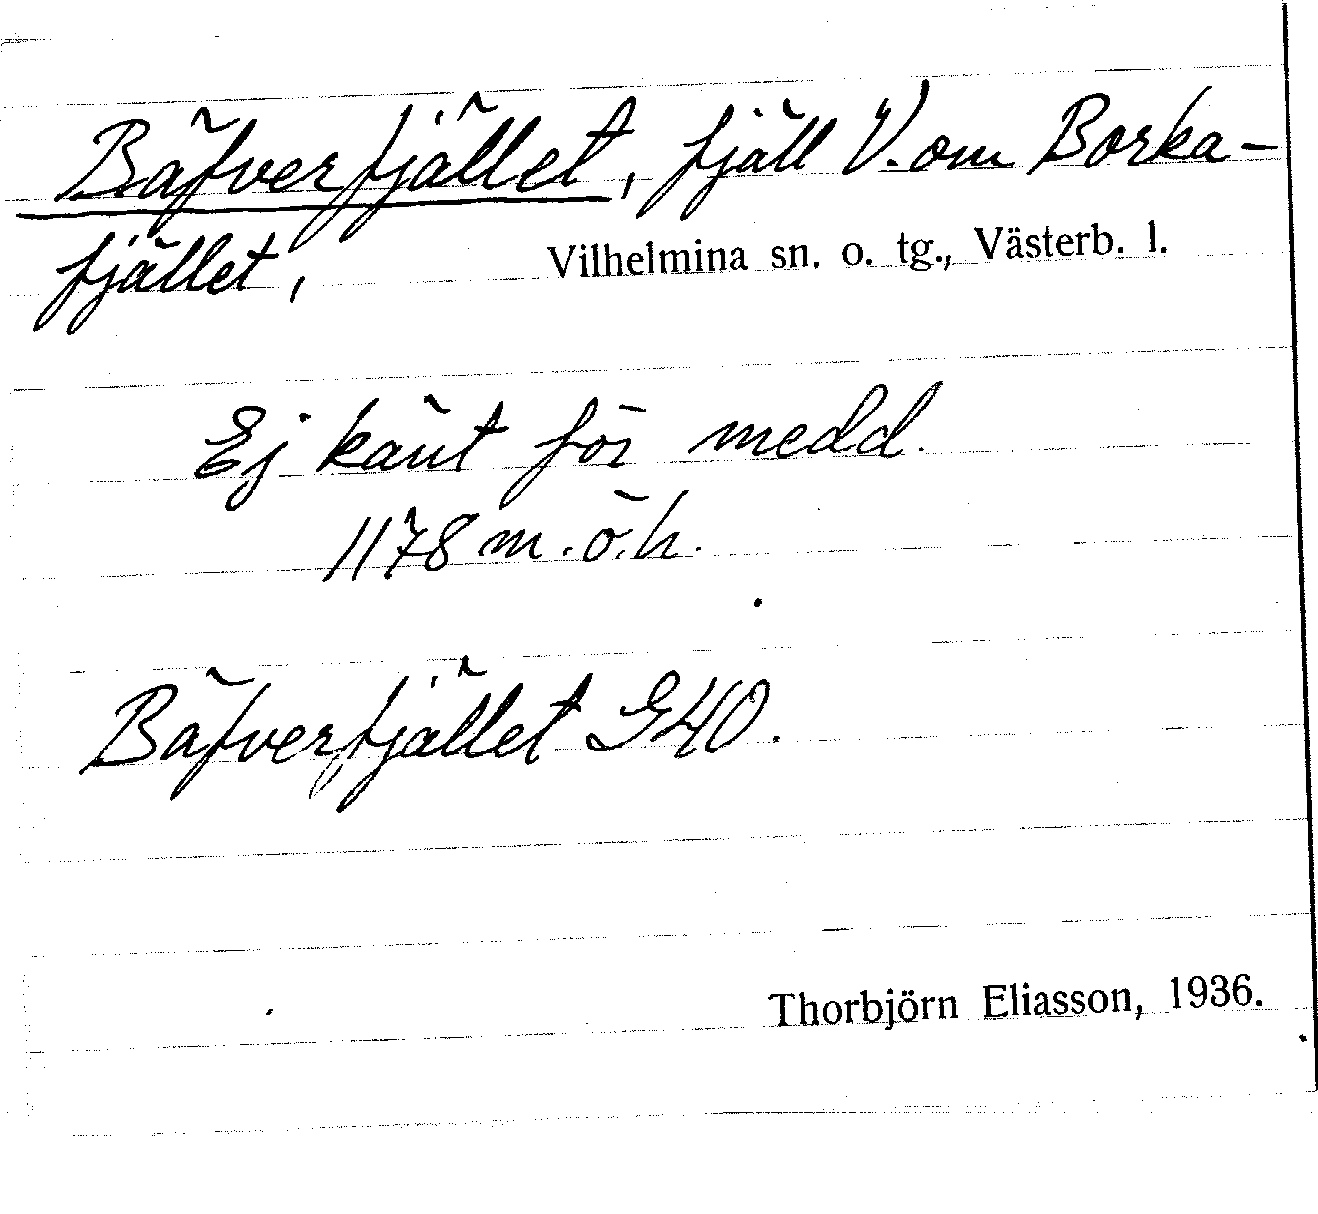 Bäfverfjället, fjäll V. om Borka-
fjället, Vilhelmina sn. o. tg., Västerb. l.
Ej känt för medd.
1178 m. ö. h.
Bäfverfjället G40.
Thorbjörn Eliasson, 1936.